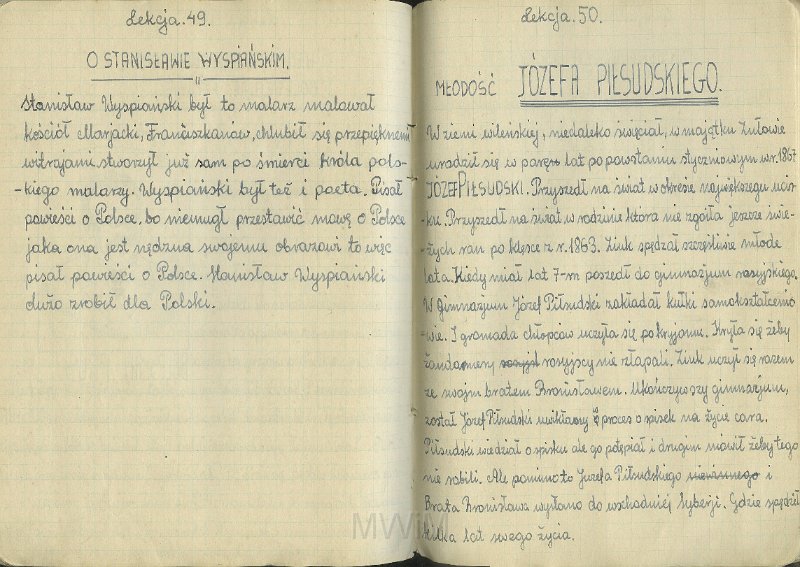 Lekcja.49.
O STANISŁAWIE WYSPIAŃSKIM.
Stanisław Wyspiański był to malarz malował
kościół Marjacki, Franciszkanów, chlubił się przepięknemi
witrajami. stworzył już sam po śmierci króla pols-
-kiego malarzy. Wyspiański był też i poeta. Pisał
powieści o Polsce, bo niemugł przestawić mowę o Polsce
jaka ona jest nędzna swojemu obrazowi to więc
pisał powieści o Polsce. Stanisław Wyspiański
dużo zrobił dla Polski.
Lekcja.50.
MŁODOŚĆ JÓZEFA PIŁSUDSKIEGO.
W ziemi wileńskiej, niedaleko święciał, w majątku Zułowie
urodził się w parę lat po powstaniu styczniowym w r. 1867
JÓZEF PIŁSUDSKI. Przyszedł na świat w okresie największego ucis-
ku. Przyszedł na świat w rodzinie która nie zgoiła jeszcze świe-
żych ran po klęsce z r. 1863. Ziuk spędzał szczęśliwie młode
lata. Kiedy miał lat 7-m poszedł do gimnazjum rosyjskiego.
W Gimnazjum Józef Piłsudski zakładał kułki samokształcenio
-we. I gromada chłopców uczyła się pokryjomu. Kryła się żeby
żandarmery rosyjscy nie złapali. Ziuk uczył się razem
ze swojm bratem Bronisławem. Ukończywszy gimnazjum,
został Józef Piłsudski uwikłany w proces o spisek na życie cara.
Piłsudski wiedział o spisku ale go potępiał i drugim mówił żeby tego
nie robili. Ale pomimo to Juzefa Piłsudskiego niewinnego i
Brata Bronisława wysłano do wschodniej Syberji. Gdzie spędził
kilka lat swego życia.
MWiM